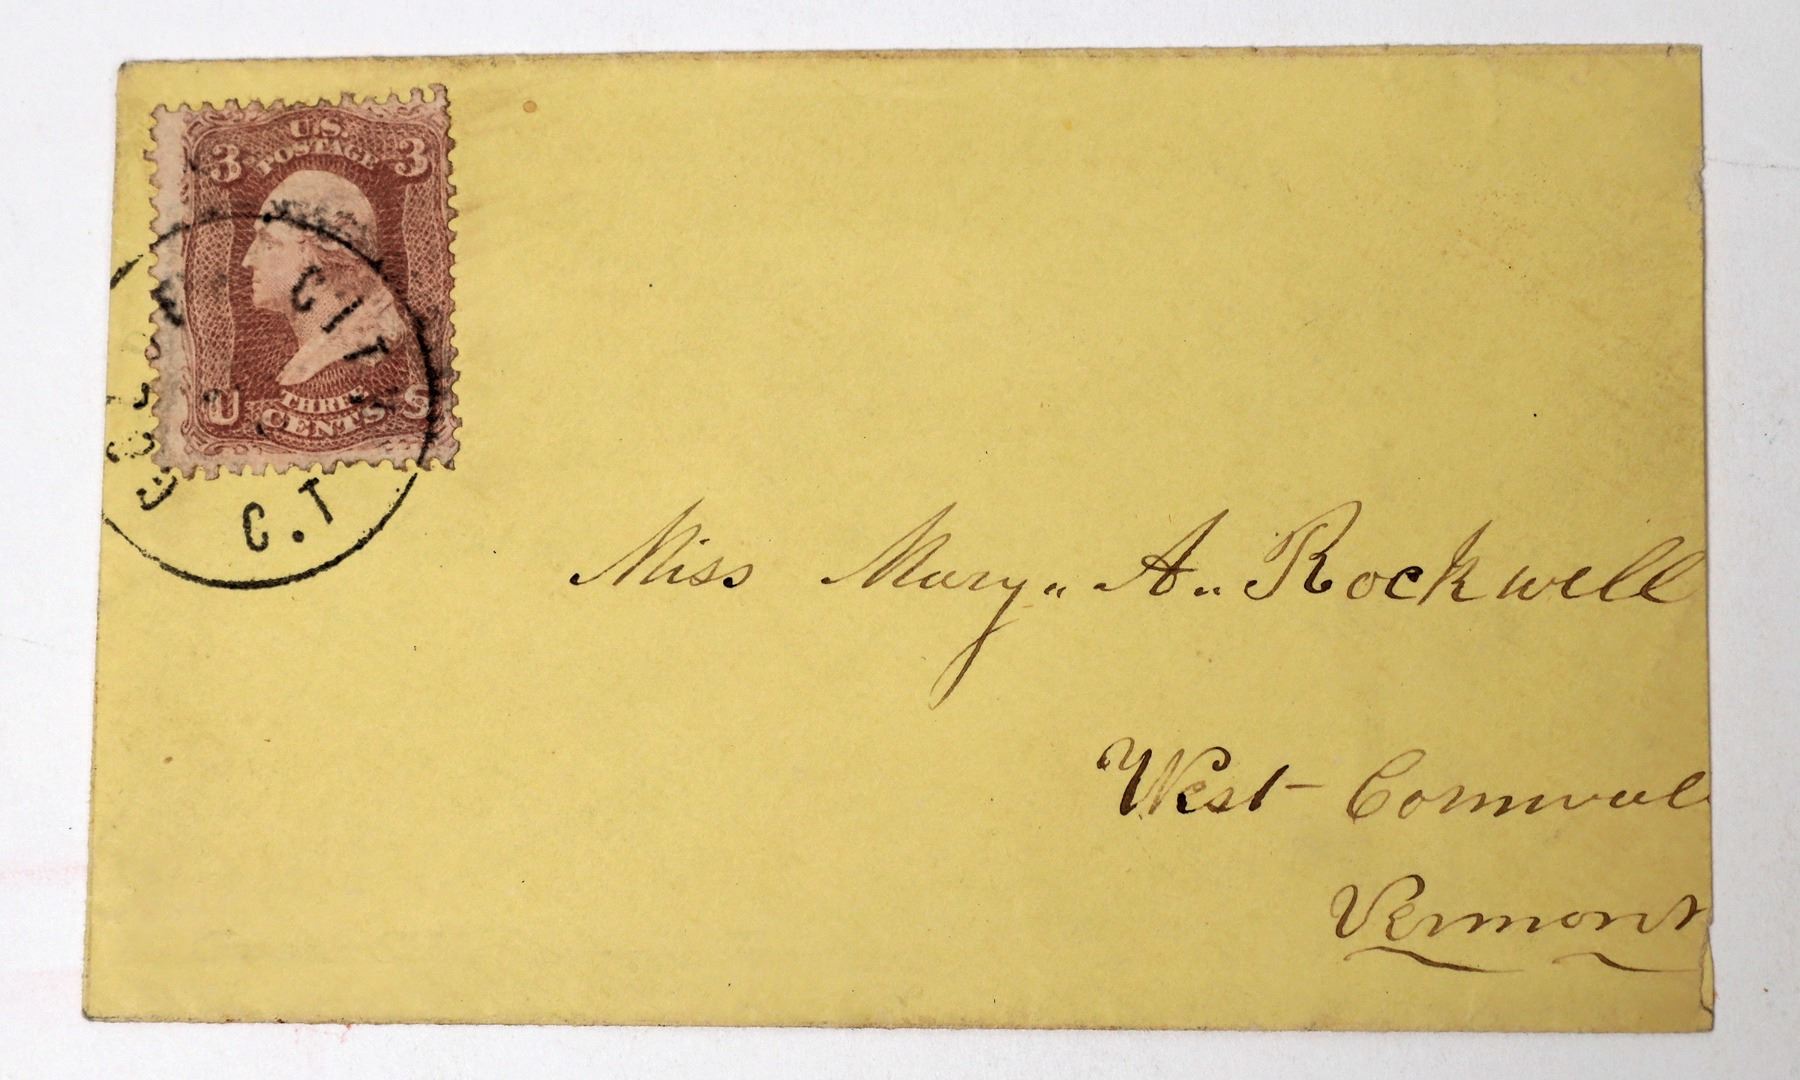 U.S.
POSTAGE
3 3
THREE
CENTS
U S
CITY
C.T
Miss Mary A. Rockwell
West Cornwal
Vermont